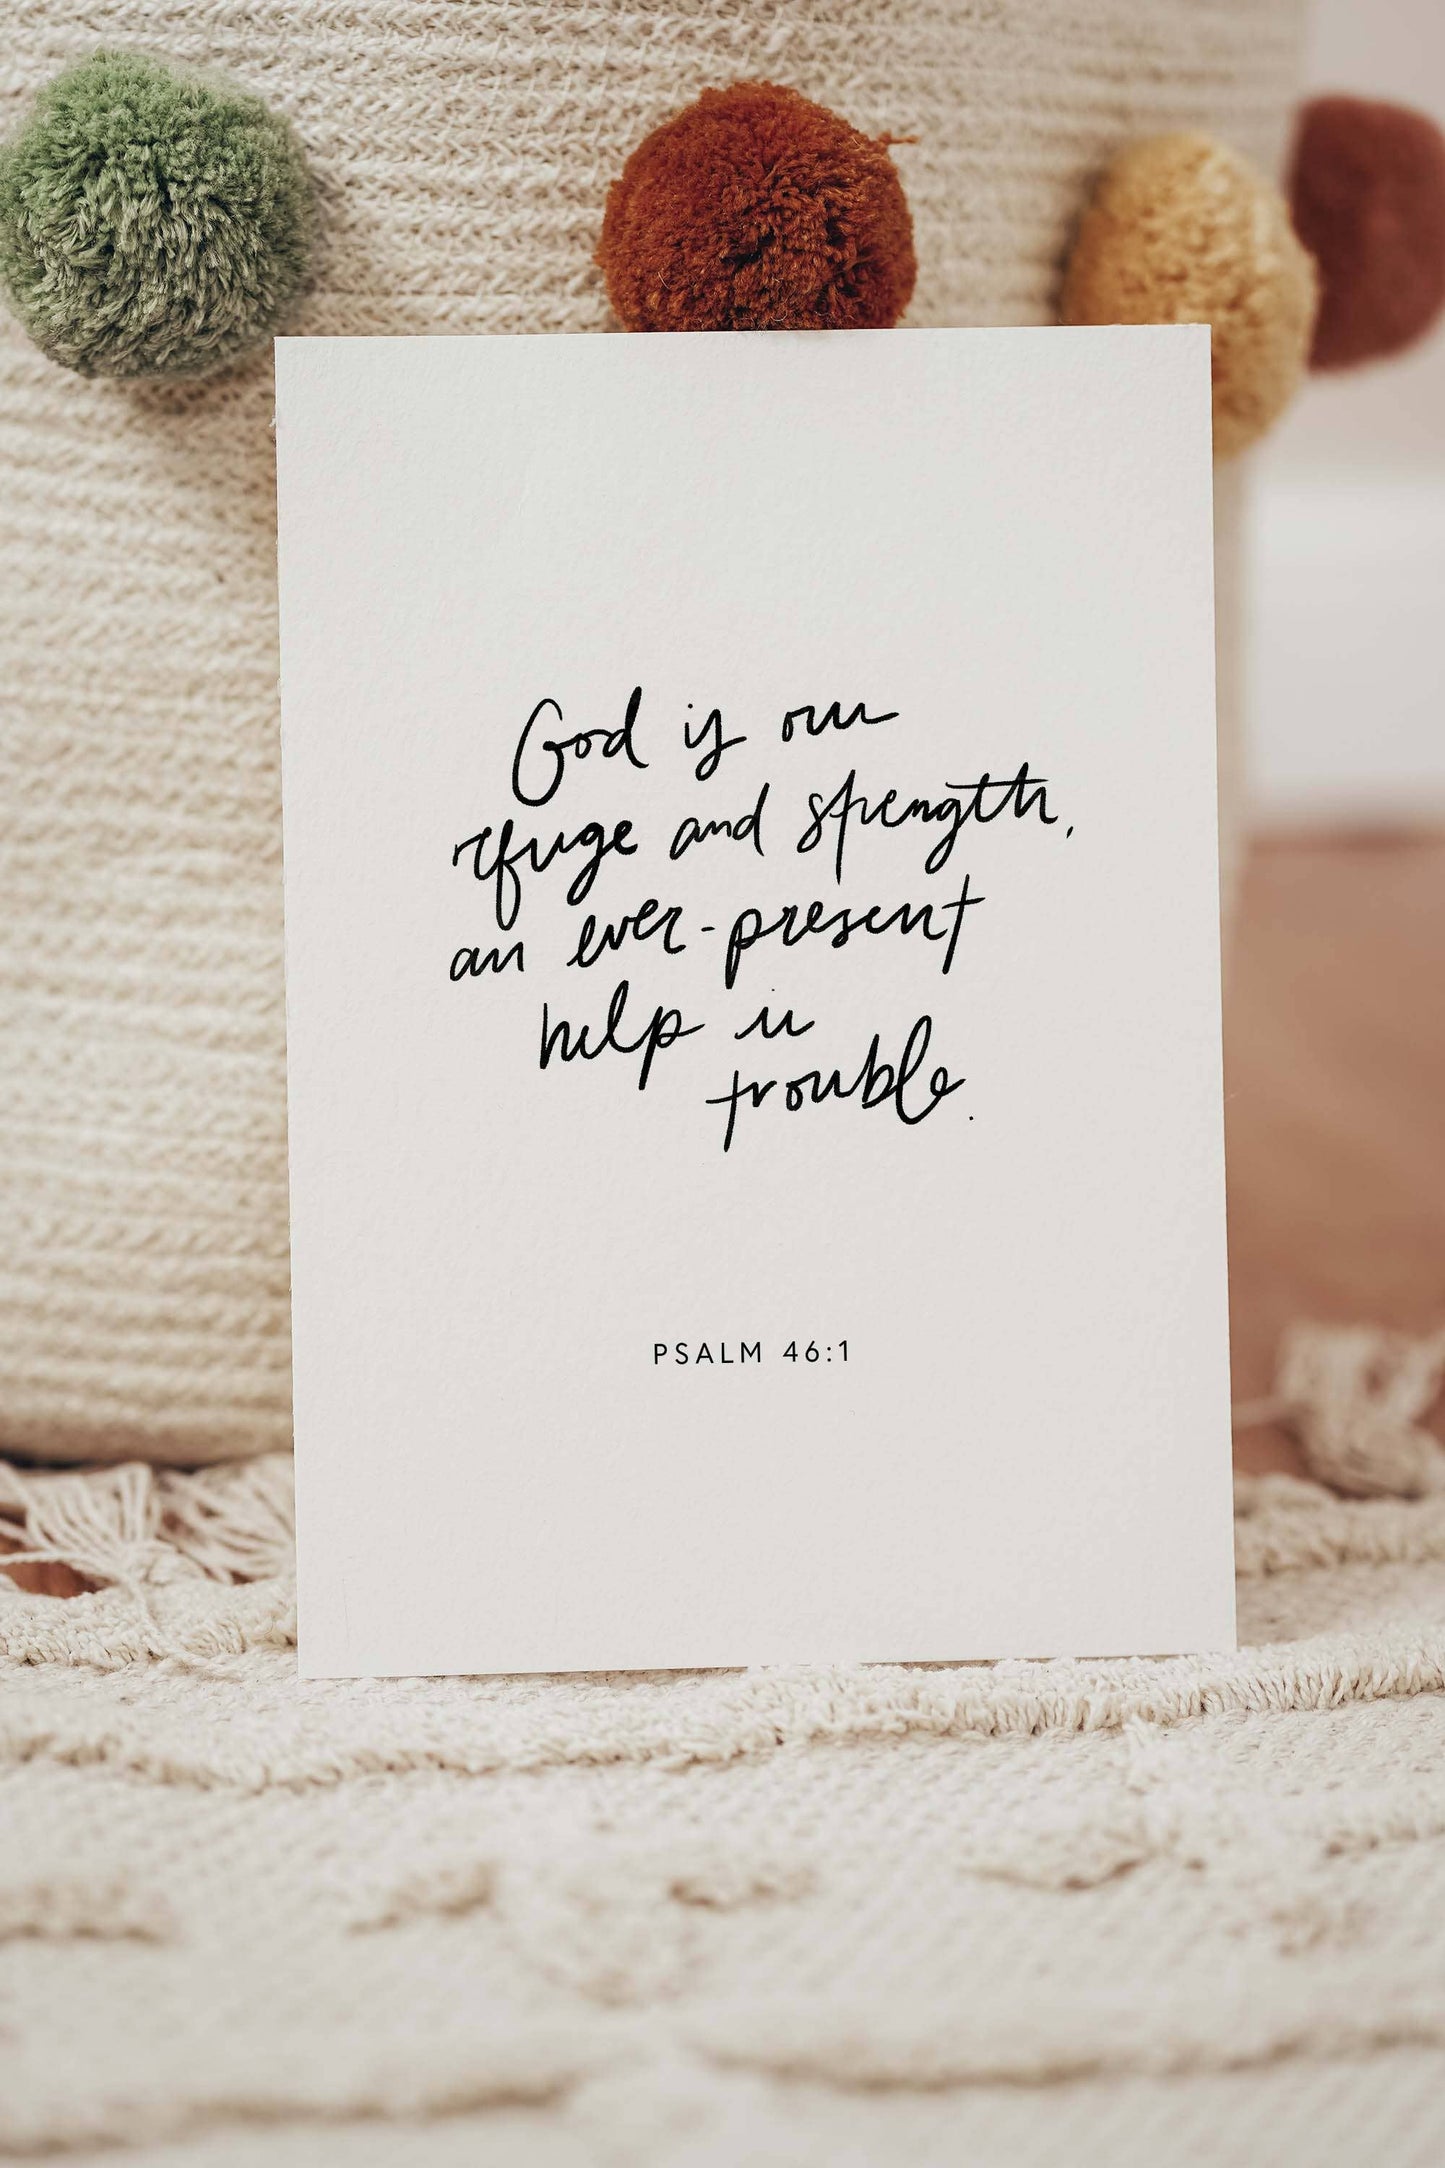 God is our
refuge and strength,
an ever-present
help in
trouble.
PSALM 46:1